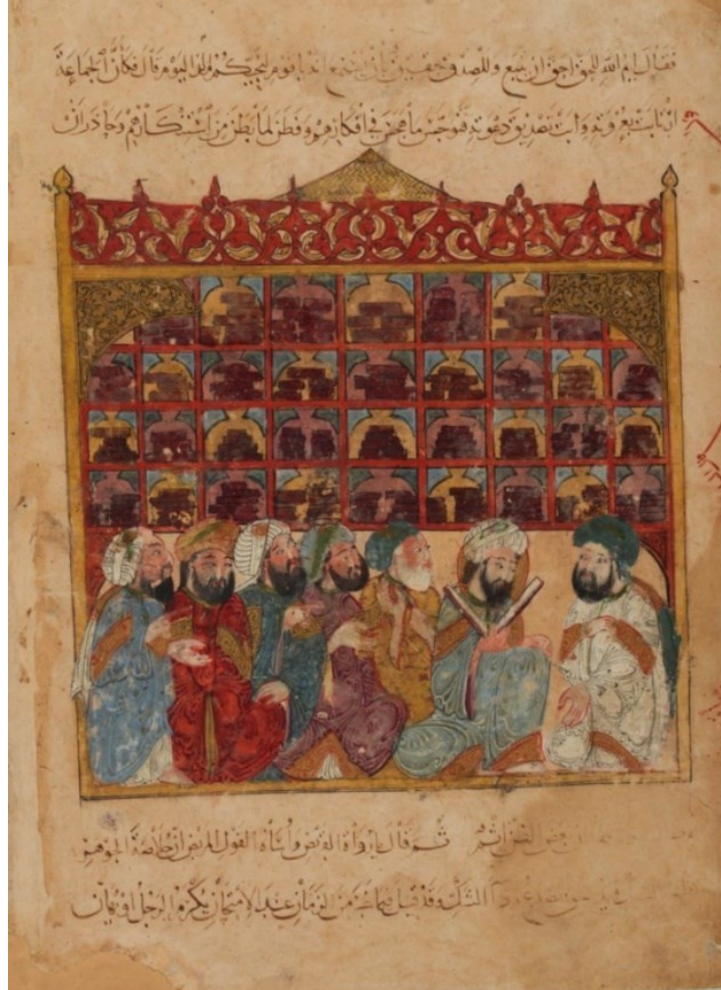 فقال ايم الله للحق احق ان يتبع وللصدق حقيق بان يستمع انه يا قوم لنجيكم مذ اليوم قال فكأن الجماعة
ارتابت بعزوته وابت تصديق دعوته فتوجس ما هجس في افكارهم وفطن لما بطن من استنكارهم وحاذر ان
ان بعض الظن اثم ثم قال يا رواة القريض وأساة القول المريض ان خلاصة الجوهر
الحق تصدع رداء الشك وقد قيل فيما غبر من الزمان عند الامتحان يكرم الرجل او يهان